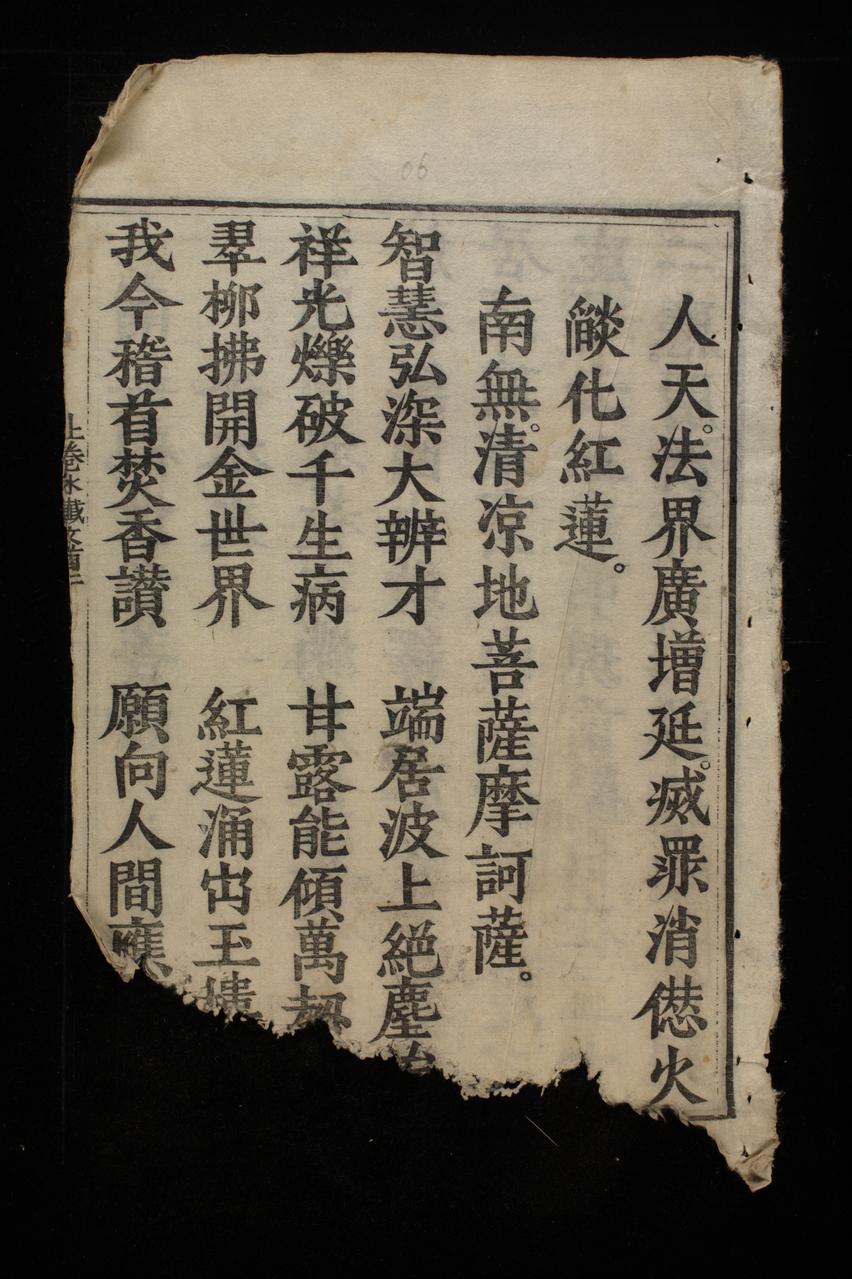 人天。法界廣增延。滅罪消愆火
燄化紅蓮。
南無。清凉地菩薩摩訶薩。
智慧弘深大辨才　端居波上絕塵
祥光爍破千生病　甘露能傾萬劫
翠柳拂開金世界　紅蓮涌出玉樓
我今稽首焚香讚　願向人間應
06
上卷水懺